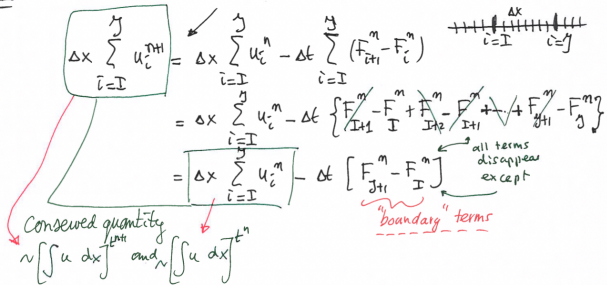 Δx
i=I i=J
Δx Σ_{i=I}^{J} u_i^{n+1} = Δx Σ_{i=I}^{J} u_i^n - Δt Σ_{i=I}^{J} (F_{i+1}^n - F_i^n)
= Δx Σ_{i=I}^{J} u_i^n - Δt { F_{I+1}^n - F_I^n + F_{I+2}^n - F_{I+1}^n + ... + F_{J+1}^n - F_J^n }
= Δx Σ_{i=I}^{J} u_i^n - Δt [ F_{J+1}^n - F_I^n ]
all terms
disappear
except
"boundary" terms
Conserved quantity
~ [∫ u dx]^{t^{n+1}} and ~ [∫ u dx]^{t^n}